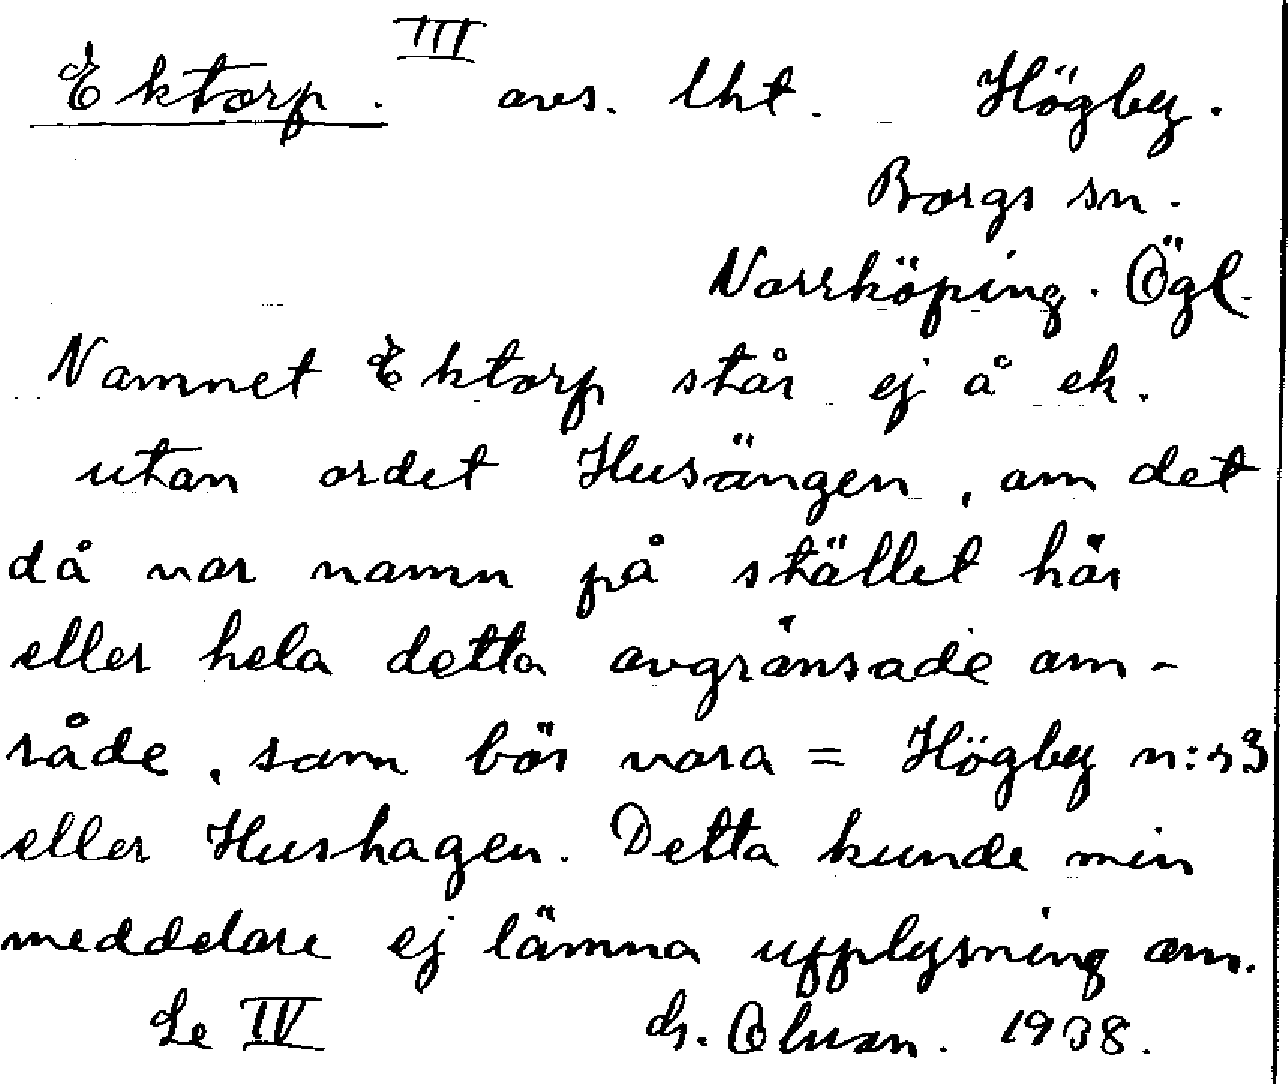 Ektorp. III avs. lht. Högby.
Borgs sn.
Norrköping. Ögl.
Namnet Ektorp står ej å ek.
utan ordet Husängen, om det
då var namn på stället här
eller hela detta avgränsade om-
råde, som bör vara = Högby n:r 3
eller Hushagen. Detta kunde min
meddelare ej lämna upplysning om.
Se IV 1938.